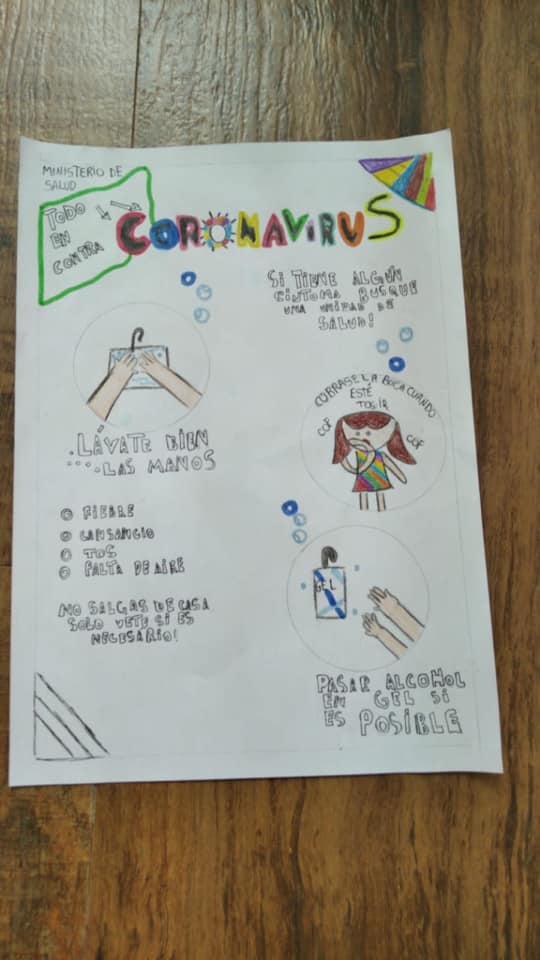 MINISTERIO DE
SALUD
TODO
EN
CONTRA
CORONAVIRUS
SI TIENE ALGÚN
CINTOMA BUSQUE
UNA UNIDAD DE
SALUD!
COBRASE LA BOCA CUANDO
ESTÉ
TOSIR
COF
COF
.LÁVATE BIEN
....LAS MANOS
FIEBRE
CANSANCIO
TOS
FALTA DE AIRE
NO SALGAS DE CASA
SOLO VETE SI ES
NECESÁRIO!
GEL
PASAR ALCOHOL
EN GEL SI
ES POSIBLE